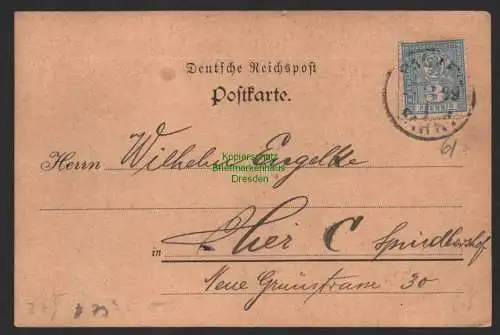 Deutsche Reichspost
Postkarte.
3
PFENNIG
99
61
Herrn Wilhelm Engelke
Kopierschutz
Briefmarkenhaus
Dresden
in Hier C Spindlershof
Neue Grünstrasse 30